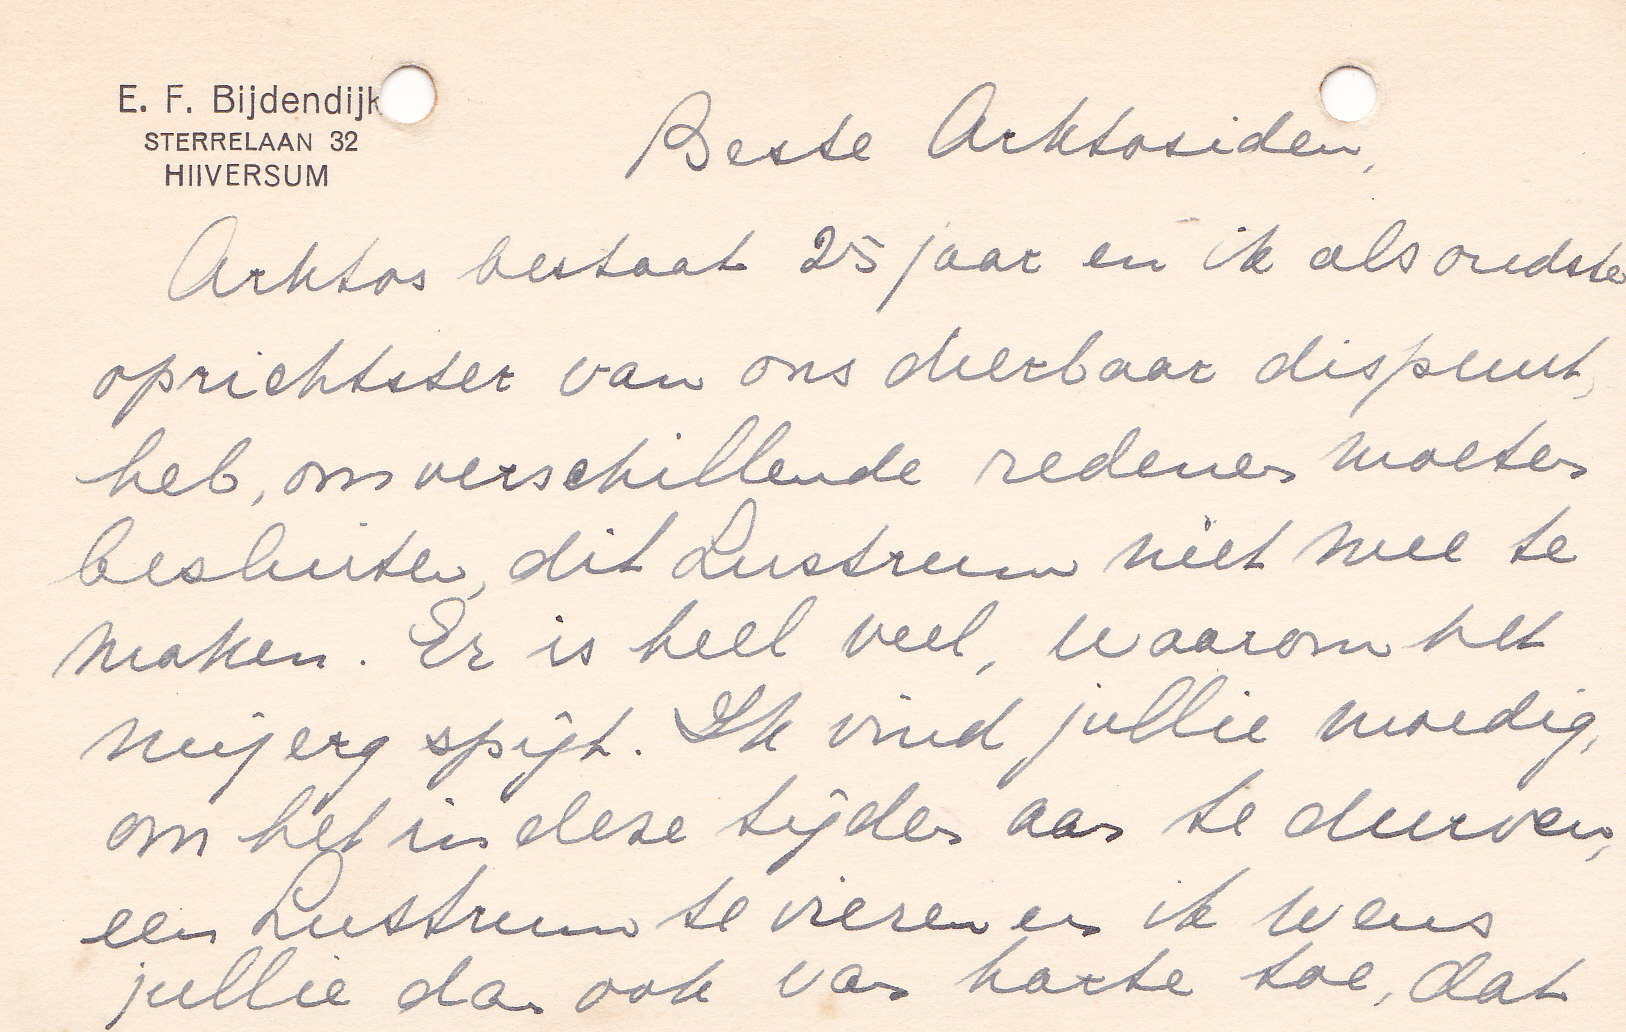 E. F. Bijdendijk
STERRELAAN 32
HIIVERSUM
Beste Arktosiden,
Arktos bestaat 25 jaar en ik als oudste
oprichtster van ons dierbaar dispuut,
heb, om verschillende redenen moeten
besluiten, dit Lustrum niet mee te
maken. Er is heel veel, waarom het
mij erg spijt. Ik vind jullie moedig,
om het in deze tijden aan te durven,
een Lustrum te vieren en ik wens
jullie dan ook van harte toe, dat